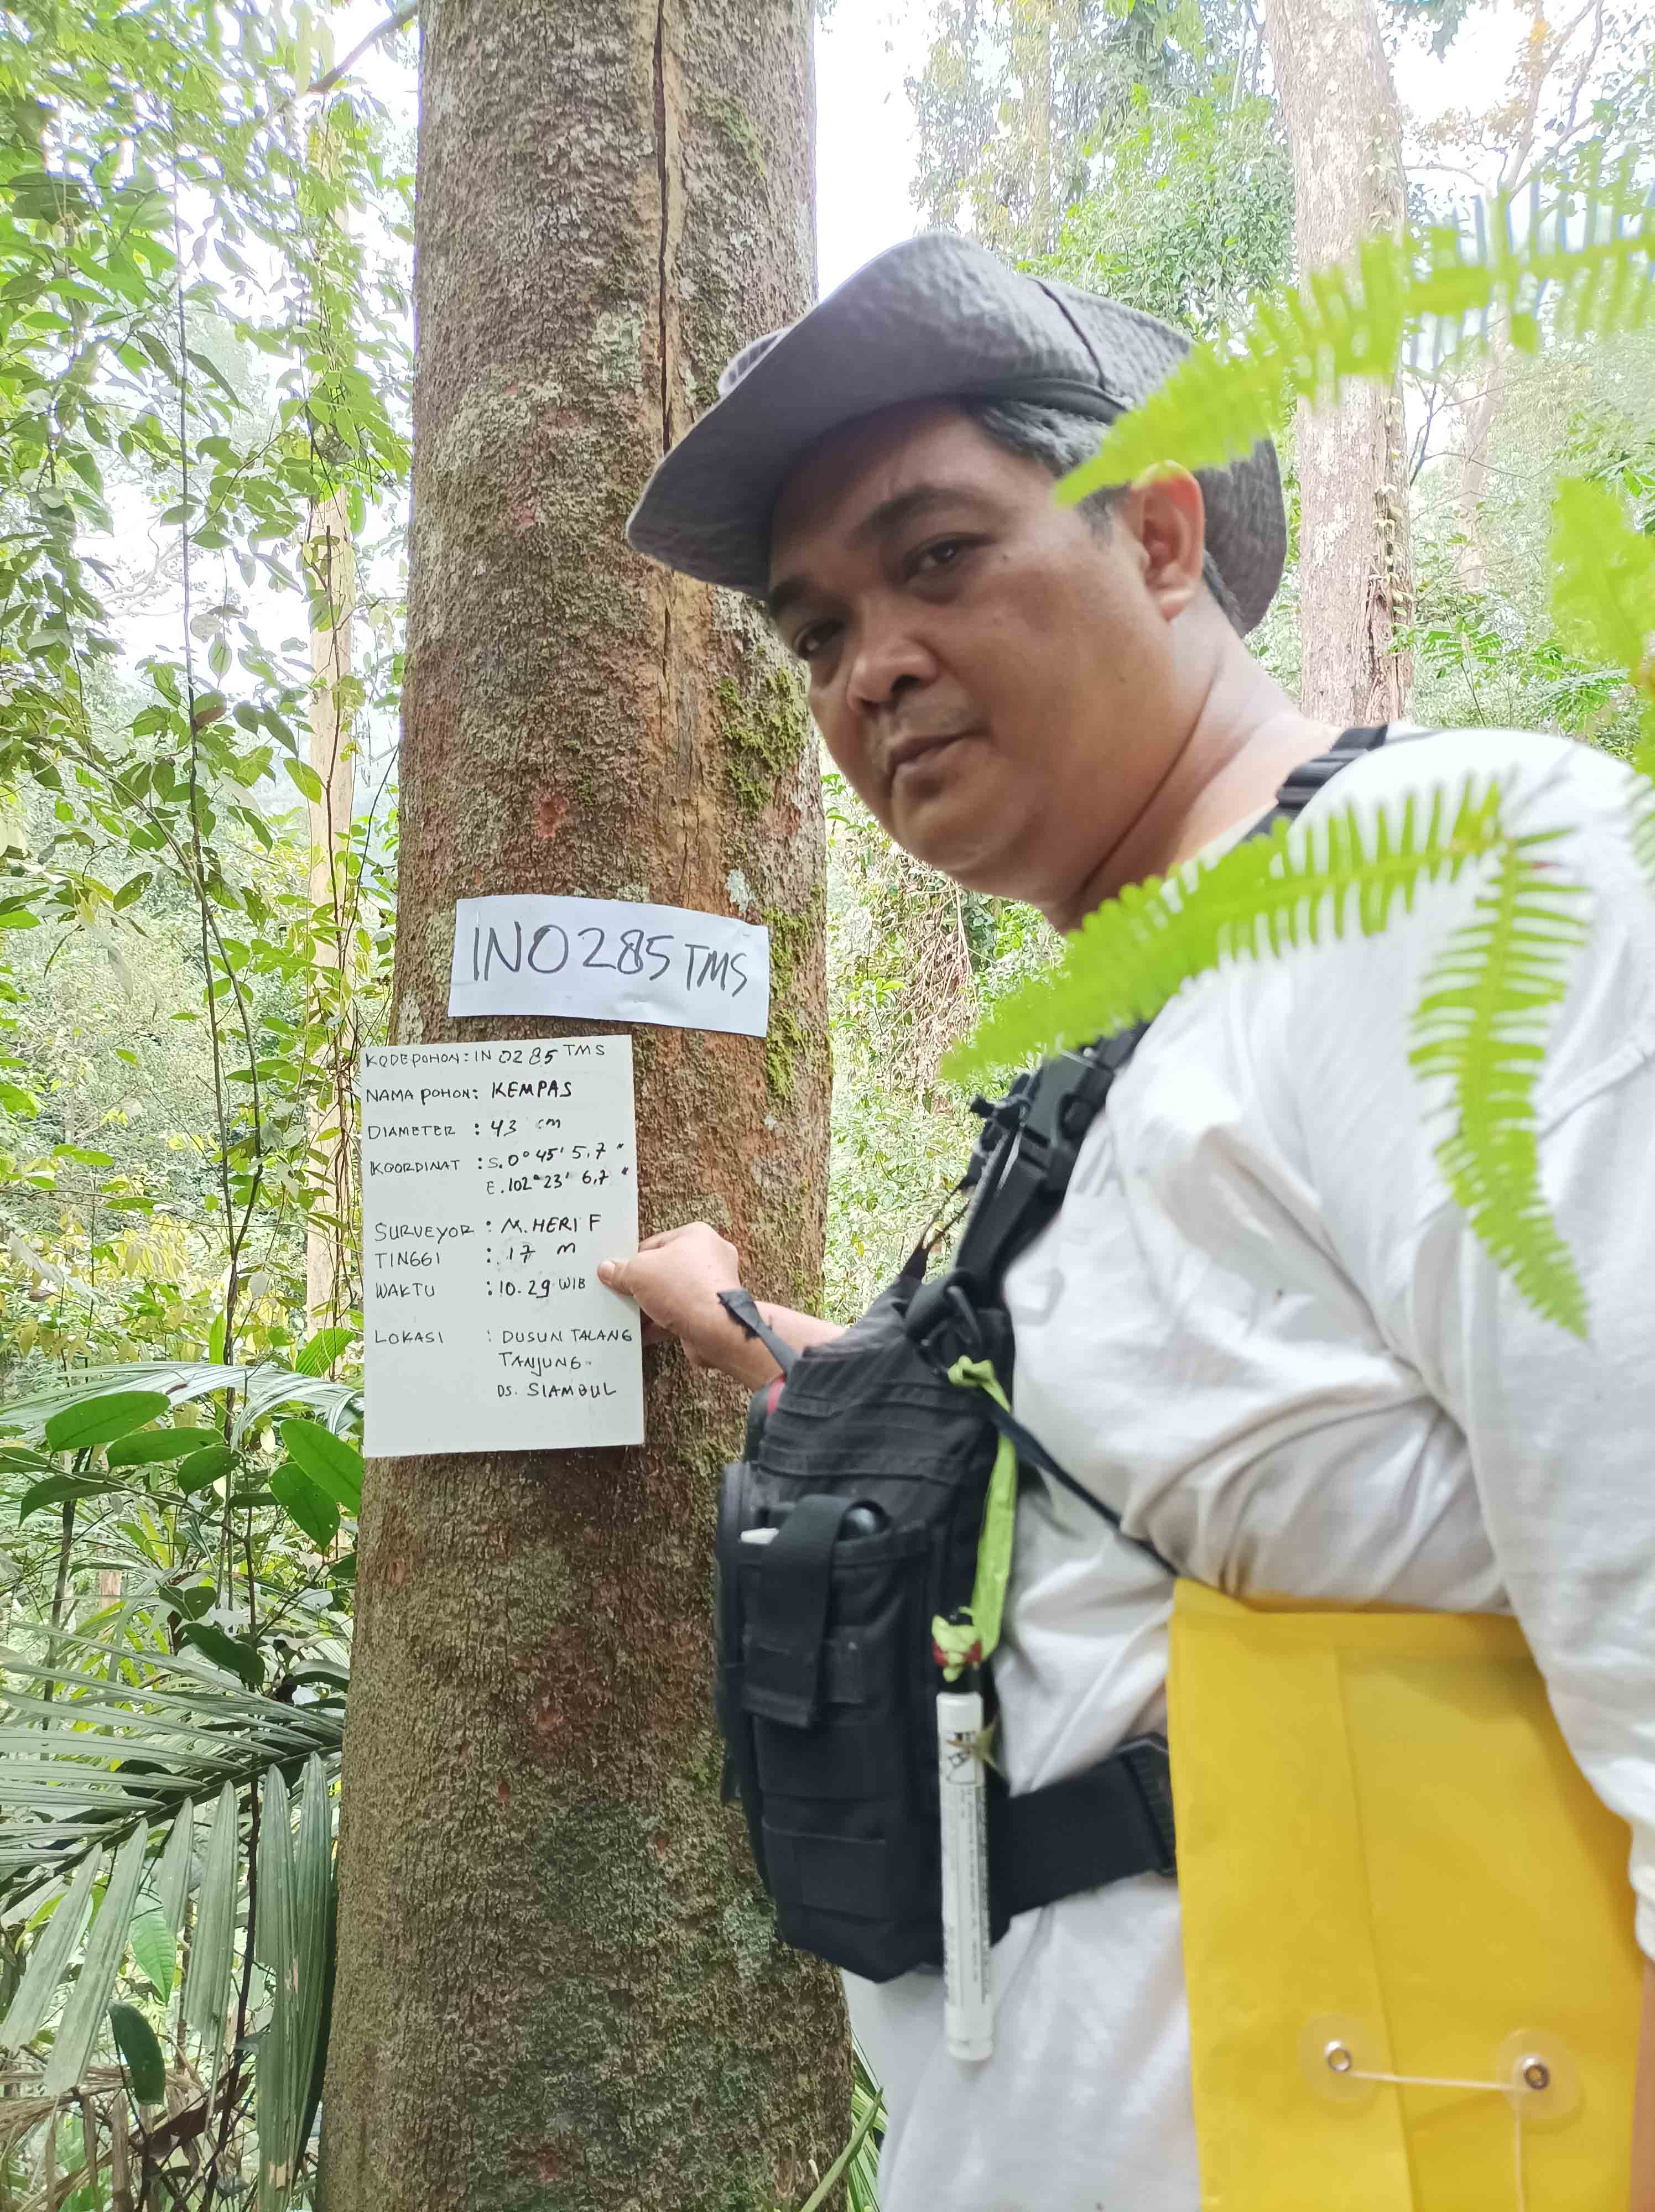 INO285 TMS
KODE POHON : IN 0285 TMS
NAMA POHON : KEMPAS
DIAMETER : 43 cm
KOORDINAT : S. 0° 45' 5,7 "
E. 102° 23' 6,7 "
SURVEYOR : M. HERI F
TINGGI : 17 m
WAKTU : 10.29 WIB
LOKASI : DUSUN TALANG
TANJUNG
DS. SIAMBUL